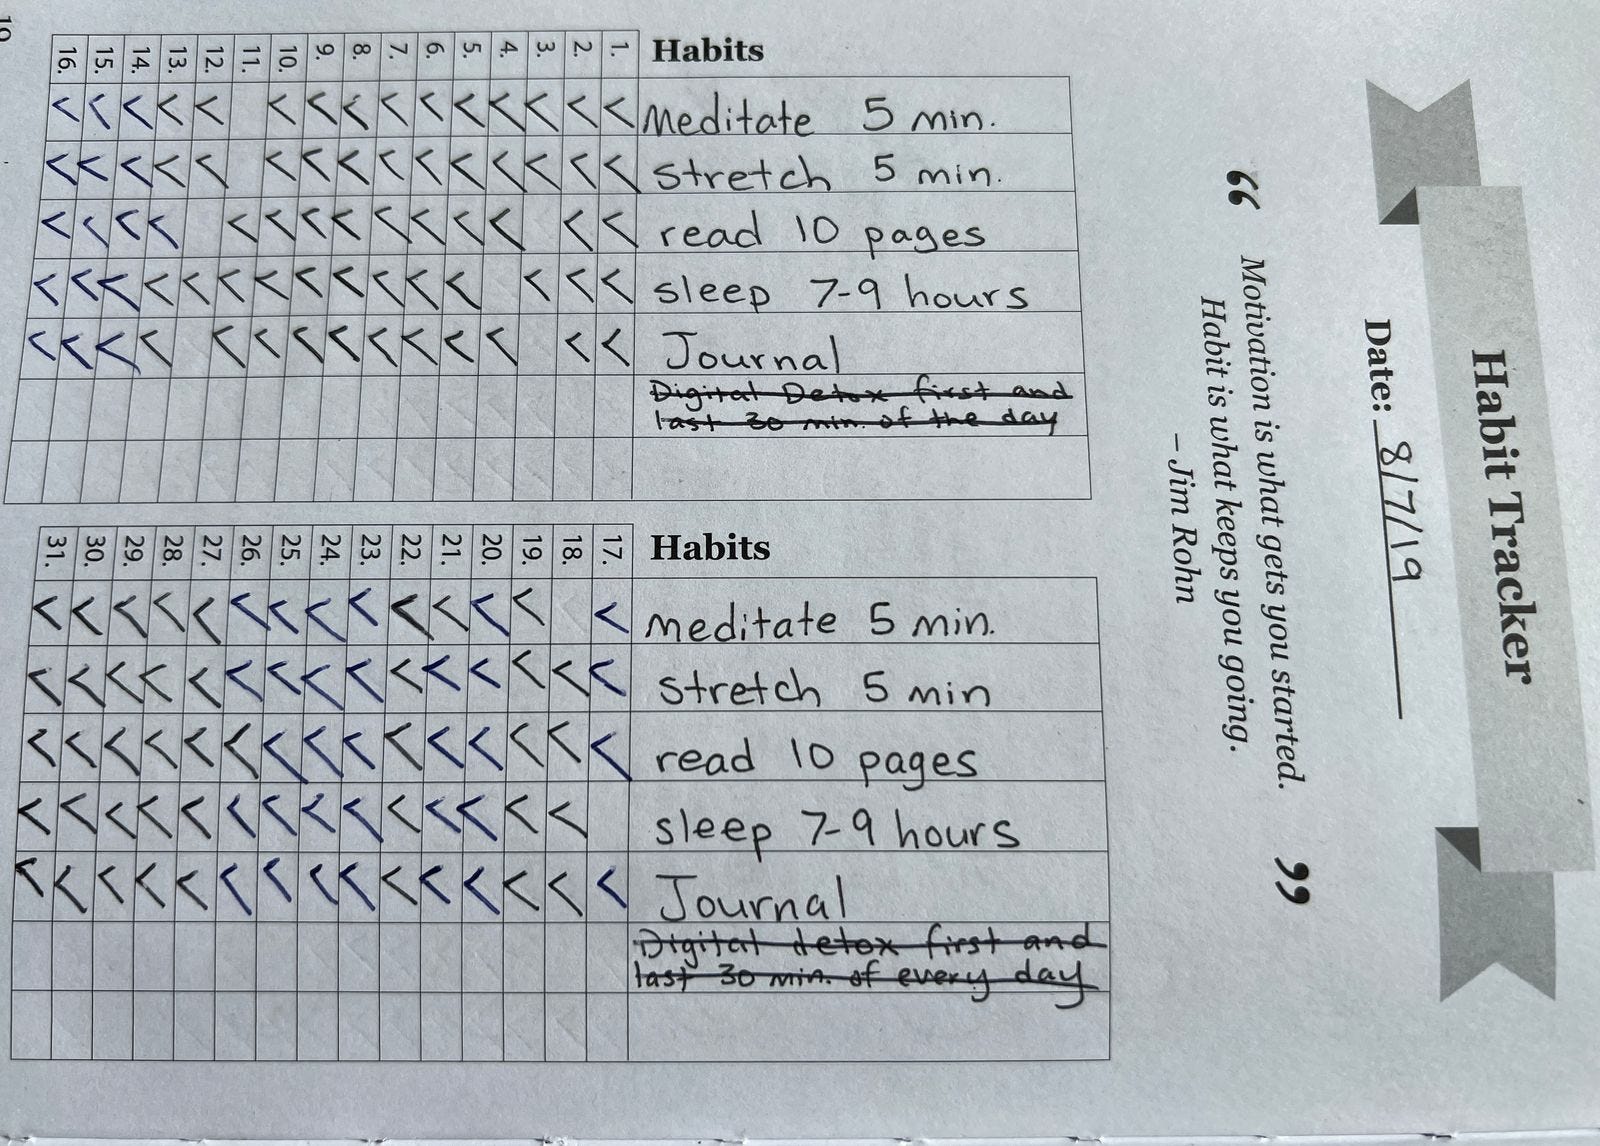 Habit Tracker
Date: 8/7/19
“ Motivation is what gets you started.
Habit is what keeps you going. ”
– Jim Rohn
Habits 1. 2. 3. 4. 5. 6. 7. 8. 9. 10. 11. 12. 13. 14. 15. 16.
Meditate 5 min.
stretch 5 min.
read 10 pages
sleep 7-9 hours
Journal
Digital Detox first and
last 30 min. of the day
Habits 17. 18. 19. 20. 21. 22. 23. 24. 25. 26. 27. 28. 29. 30. 31.
meditate 5 min.
stretch 5 min
read 10 pages
sleep 7-9 hours
Journal
Digital detox first and
last 30 min. of every day